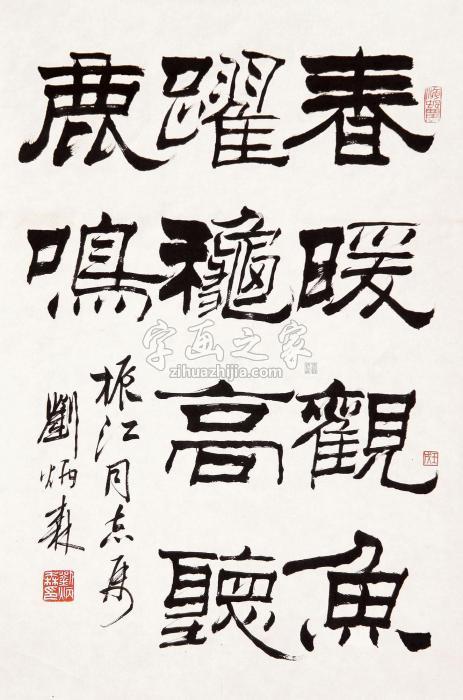 春暖觀魚
躍龝高聽
鹿鳴
振江同志屬
劉炳森
字画之家
zihuazhijia.com
劉炳森印